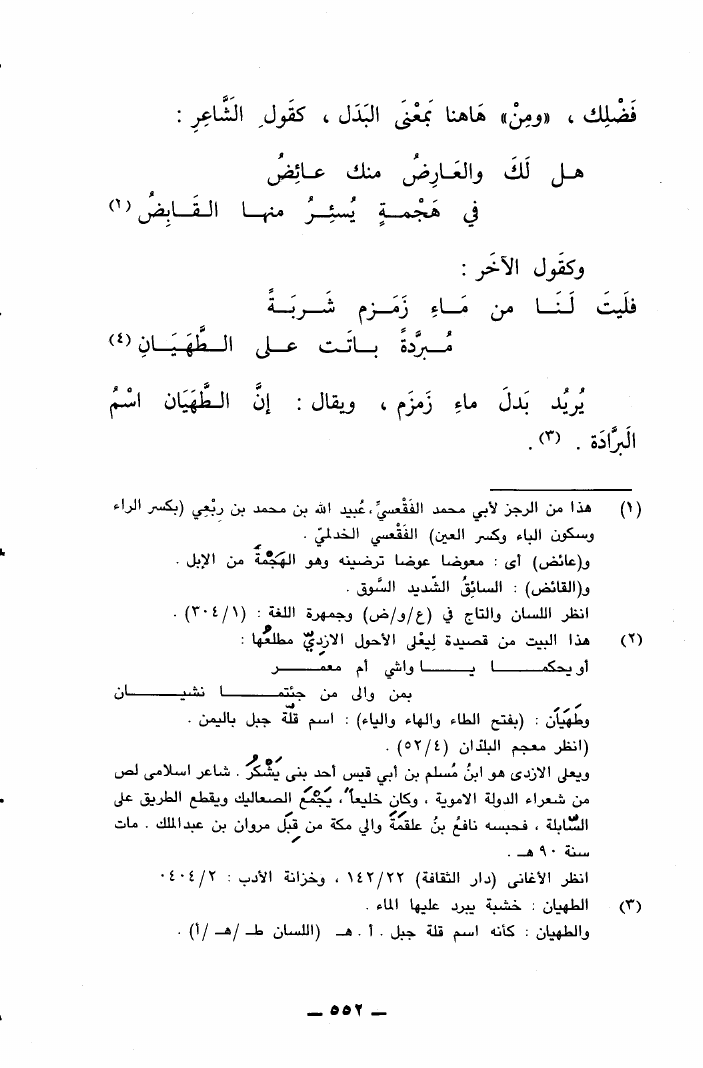 فَضْلِك ، «ومِنْ» هَاهنا بَمَعْنَى البَدَل ، كقَولِ الشَّاعِرِ :
هـل لَكَ والعَـارِضُ منك عـائِضُ
في هَجْمـةٍ يُسئِـرُ منهـا القَـابِضُ (١)
وكقَول الآخَر :
فلَيتَ لَـنَـا من مَـاءِ زَمَـزم شَـربَـةً
مُـبرَّدةً بـاتَـت عـلى الـطَّهَيَـانِ (٤)
يُريُد بَدلَ ماءِ زَمزَم ، ويقال : إنَّ الطَّهَيَان اسْمُ
البَرَّادَة . (٣) .
(١) هذا من الرجز لأبي محمد الفَقْعسيّ، عُبيد الله بن محمد بن رِبْعِي (بكسر الراء
وسكون الباء وكسر العين) الفَقْعسي الخدليّ .
و(عائض) أى : معوضا عوضا ترضينه وهو الهَجْمةُ من الإبل .
و(القائض) : السائقُ الشديد السَّوق .
انظر اللسان والتاج في (ع/و/ض) وجمهرة اللغة : (٣٠٤/١) .
(٢) هذا البيت من قصيدة لِيَعْلى الأحول الازديّ مطلعُها :
أو يحكمـــا يـــا واشي أم معمـــر
بمن والى من جئتمـــا نشيـــان
وطَهَيَان : (بفتح الطاء والهاء والياء) : اسم قُلَّة جبل باليمن .
(انظر معجم البلدان (٥٢/٤) .
ويعلى الازدى هو ابنُ مُسلم بن أبي قيس أحد بنى يَشْكُر . شاعر اسلامى لص
من شعراء الدولة الاموية ، وكان خليعاً، يَجْمَع الصعاليك ويقطع الطريق على
السَّابلة ، فحبسه نافعُ بنُ علقمَة والي مكة من قِبَل مروان بن عبدالملك . مات
سنة ٩٠ هـ .
انظر الأغانى (دار الثقافة) ١٤٢/٢٢ ، وخزانة الأدب : ٤٠٤/٢٠
(٣) الطهيان : خشبة يبرد عليها الماء .
والطهيان : كأنه اسم قلة جبل . أ . هـ (اللسان طـ /هـ /أ) .
ــ ٥٥٢ ــ